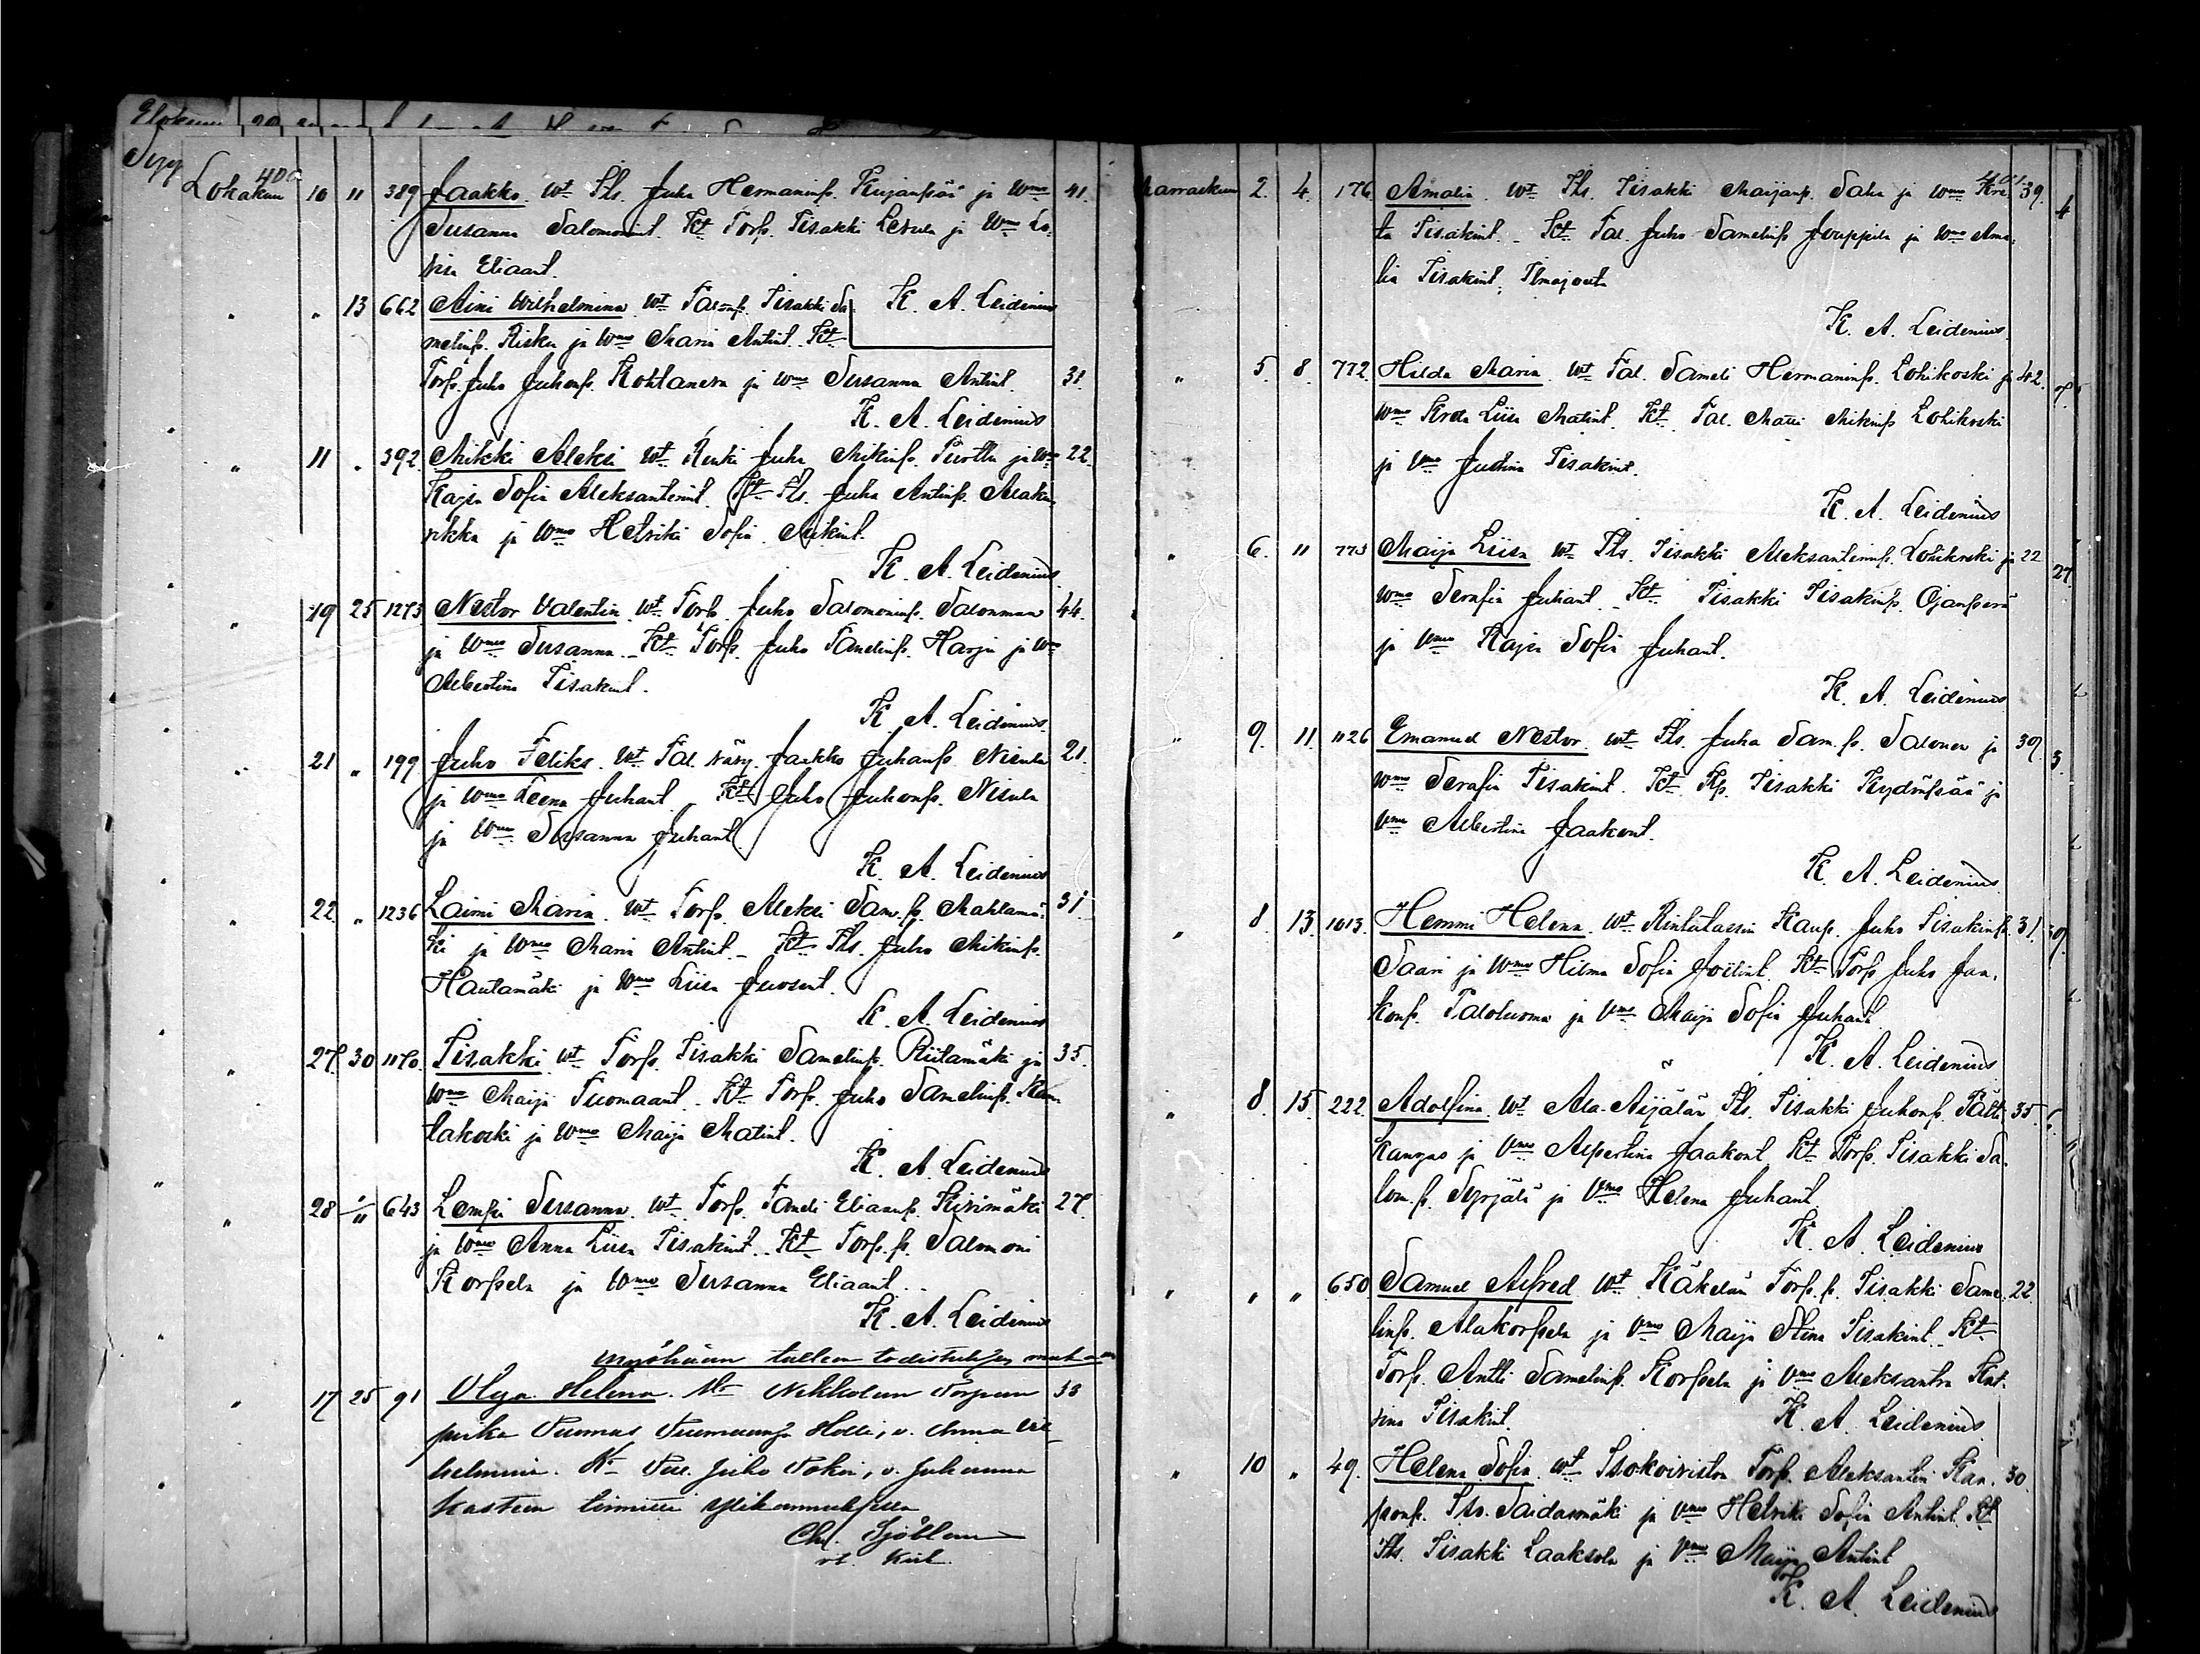 Elokuun
Syy
400
Lokakuu 10 11 389 Jaakko. wt. Itls. Juha Hermaninp. Kujanpää ja wmo 41.
Susanna Salomonint. Kt. Torp. Iisakki Lerula ja Wmo Lo-
visa Eliaant.
" " 13 662 Aini Wilhelmina wt. Talonp. Iisakki Sa- K. A. Leidenius
melinp. Risku ja wmo Maria Antint. Kt.
Torp. Juho Juhonp. Kohlaneva ja wmo Susanna Antint. 31.
K. A. Leidenius
" 11 " 392 Mikki Aleksi wt. Renki Juha Mikinp. Turtta ja wmo 22.
Kajsa Sofia Aleksanterint. Kt. Itls. Juha Antinp. Alaku-
rikka ja wmo Helviki Sofia Mikint.
K. A. Leidenius
" 19 25 1273 Nestor Valentin wt. Torp. Juho Salomoninp. Salonmaa 44.
ja wmo Susanna. Kt. Torp. Juho Taneliinp. Harju ja wmo
Albertina Iisakint.
K. A. Leidenius
" 21 " 199 Juho Feliks. wt. Tal. Jaakko Juhanp. Nisula 21.
ja wmo Leena Juhant. Kt. Juho Juhonp. Nisula
ja wmo Susanna Juhant.
K. A. Leidenius
" 22 " 1236 Laimi Maria. wt. Torp. Aleksi Sam.p. Mahlamä- 31.
ki ja wmo Maria Antint. Kt. Itls. Juho Mikinp.
Hautamäki ja wmo Liisa Juosent.
K. A. Leidenius
" 27 30 1170 Iisakki wt. Torp. Iisakki Samelinp. Riitamäki ja 35.
wmo Maija Tuomaant. Kt. Torp. Juho Samelinp.
lakoski ja wmo Maija Matint.
K. A. Leidenius
" 28 1/11 643 Lempi Susanna. wt. Torp. Taneli Eliaanp. Kirimäki 27.
ja wmo Anna Liisa Iisakint. Kt. Torp.p. Salomoni
Korpela ja wmo Susanna Eliaant.
K. A. Leidenius
myöhään tulleen todistuksen mukaan
" 17 25 91 Olga Helena. Nikkolan Torpan 33
poika Tuomas Tuomaanp. Holli, v. Anna Vil-
helmina. Kt. Juho v. Juhanna
kasteen toimitti
Chr. Sjöblom
vt. Kirk.
401
Marraskuu 2. 4. 176 Amalia. wt. Itls. Iisakki Maijanp. Saha ja wmo Kre- 39.
ta Iisakint. Kt. Tal. Juho Samelinp. Jouppila ja wmo Ama-
lia Iisakint, Ilmajoelta
K. A. Leidenius
" 5. 8. 772. Hilda Maria. wt. Tal. Sameli Hermaninp. Lohikoski ja 42.
wmo Kreta Liisa Matint. Kt. Tal. Matti Mikinp. Lohikoski
ja vmo Justina Iisakint.
K. A. Leidenius
" 6. 11 773 Maija Liisa wt. Itls. Iisakki Aleksanterinp. Lohikoski ja 22
wmo Serafia Juhant. Kt. Iisakki Iisakinp. Ojanperä
ja vmo Kajsa Sofia Juhant.
K. A. Leidenius
" 9. 11. 1126 Emanuel Nestor. wt. Itls. Juha Sam.p. Salonen ja 39.
wmo Serafia Iisakint. Kt. Iisakki Kydönpää ja
vmo Albertina Jaakont.
K. A. Leidenius
" 8. 13. 1013. Hemmi Helena. wt. Rintatassin Kaup. Juho Iisakinp. 31.
Saari ja wmo Hilma Sofia Joelint. Kt. Torp. Juho Jaa-
konp. Taloluoma ja vmo Maija Sofia Juhant.
K. A. Leidenius
" 8. 15. 222. Adolfina. wt. Ala-Äijälän Itls. Iisakki Juhonp. Pält- 35.
kangas ja vmo Alpertina Jaakont. Kt. Torp. Iisakki Sa-
lom.p. Syrjälä ja vmo Helena Juhant.
K. A. Leidenius
" " " 650 Samuel Alfred wt. Käkelän Torp.p. Iisakki Same- 22.
linp. Alakorpela ja vmo Maija Stina Iisakint. Kt.
Torp. Antti Samelinp. Korpela ja vmo Aleksantra Kat-
rina Iisakint. K. A. Leidenius
" 10 " 49. Helena Sofia. wt. Isokoiviston Torp. Aleksanteri Kaa- 30.
ponp. Saidanmäki ja vmo Helviki Sofia Antint. Kt.
Itls. Iisakki Laaksola ja vmo Maija Antint.
K. A. Leidenius